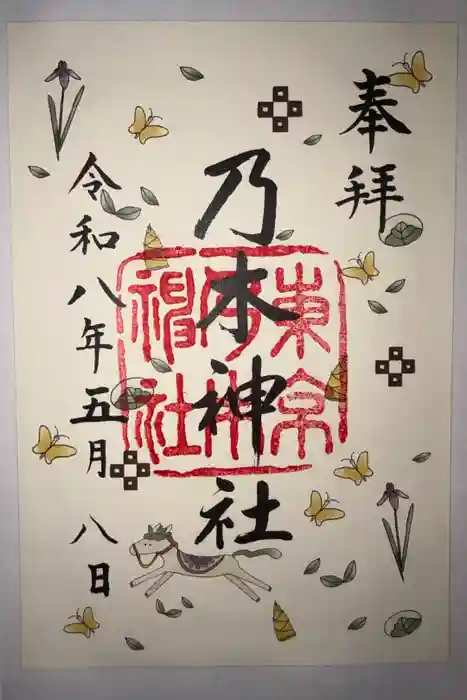 奉拝
乃木神社
東京
神社
令和八年五月八日